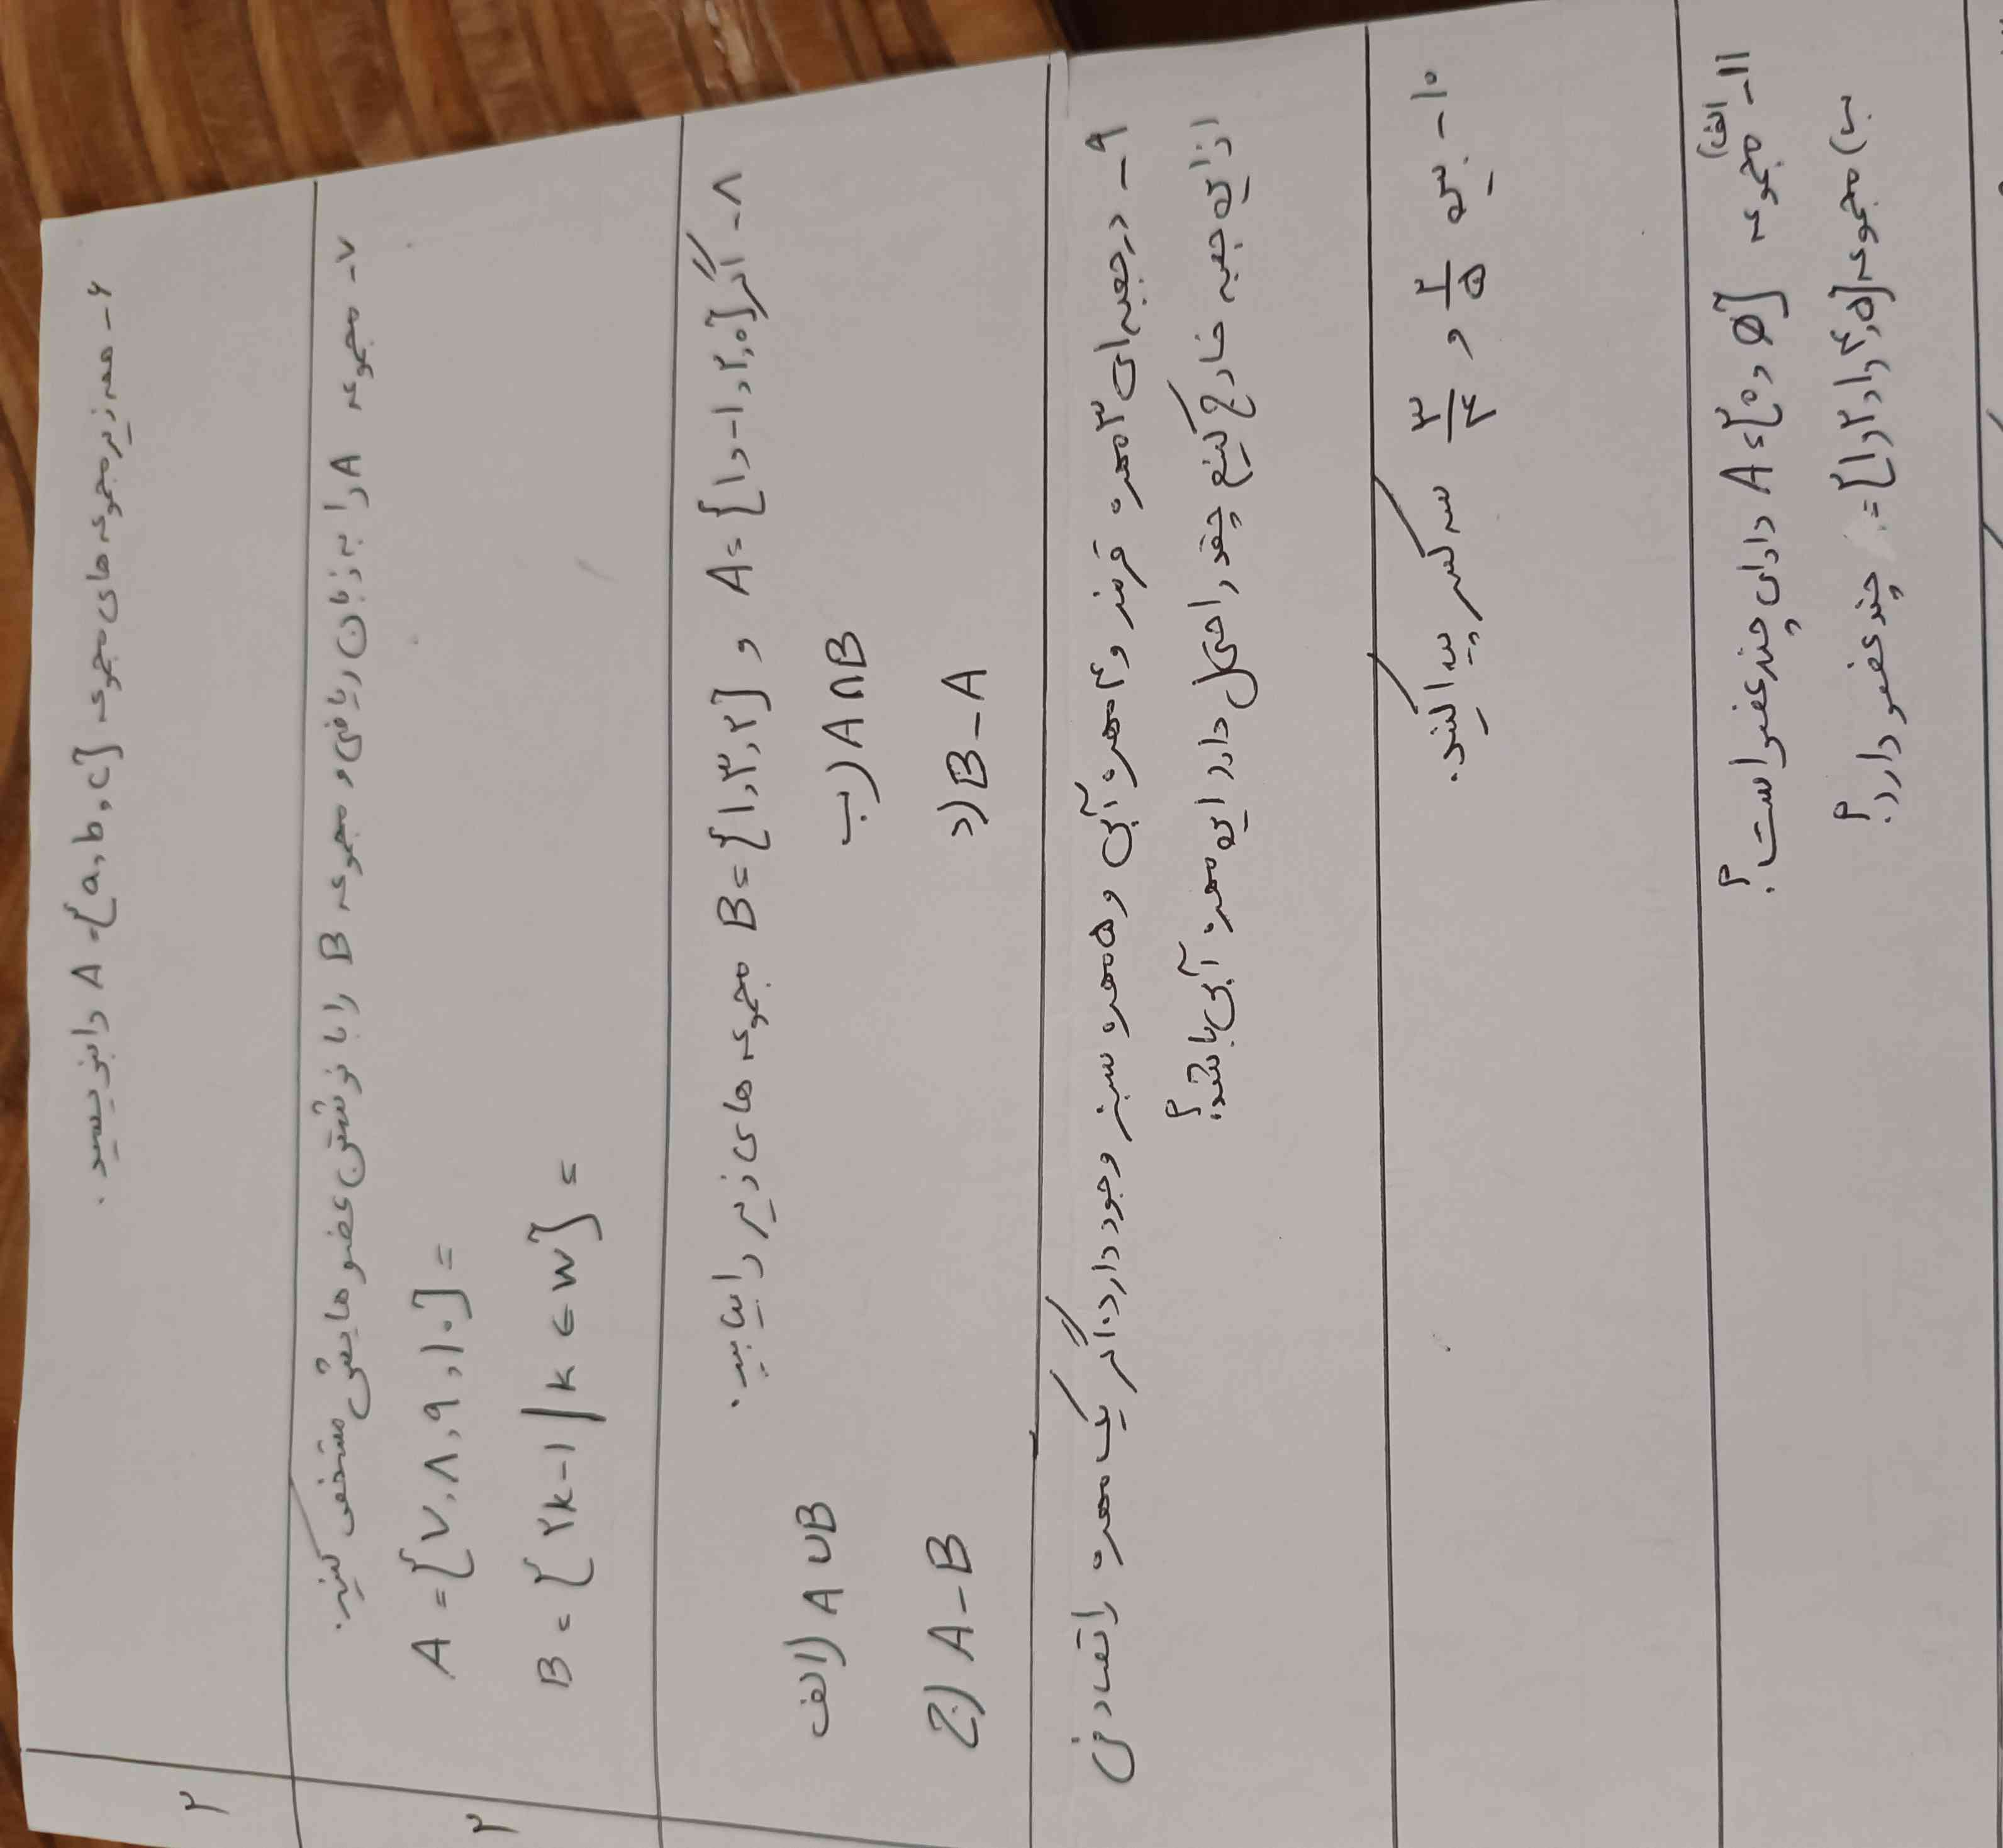 ۶- همه زیرمجموعه های مجموعه A={a,b,c} را بنویسید.
۲
۷- مجموعه A را به زبان ریاضی و مجموعه B را با نوشتن عضوهایش مشخص کنید.
A={۷,۸,۹,۱۰}=
B={۲k-۱|k∈W}=
۲
۸- اگر A={۱,-۱,۲,۰} و B={۱,۳,۲} مجموعه های زیر را بیابید.
الف) A∪B ب) A∩B
ج) A-B د) B-A
۹- در جعبه ای ۳ مهره قرمز و ۴ مهره آبی و ۵ مهره سبز وجود دارد. اگر یک مهره را تصادفی
از این جعبه خارج کنیم چقدر احتمال دارد این مهره آبی باشد؟
۱۰- بین ۲/۵ و ۳/۴ سه کسر پیدا کنید.
۱۱- الف) مجموعه A={۰,∅} دارای چند عضو است؟
ب) مجموعه {۱,۲,۱,۴,۵}= چند عضو دارد؟